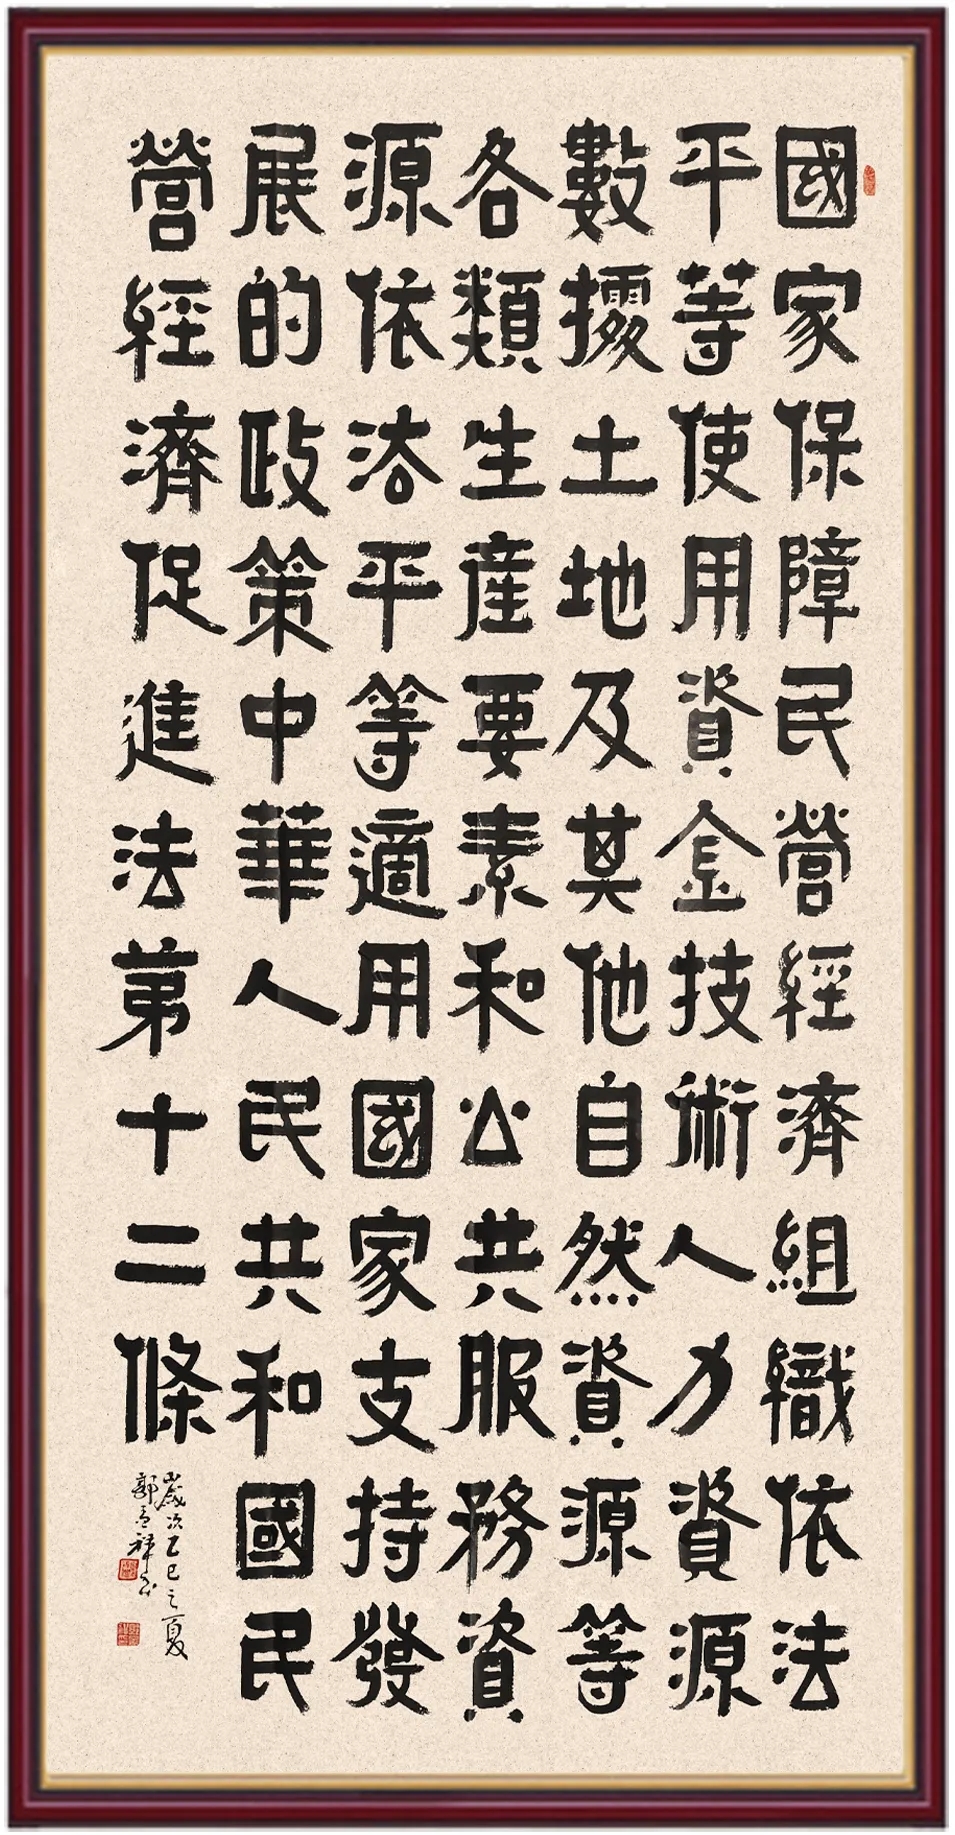 國家保障民營經濟組織依法
平等使用資金技術人力資源
數據土地及其他自然資源等
各類生産要素和公共服務資
源依法平等適用國家支持發
展的政策中華人民共和國民
營經濟促進法第十二條
歲次乙巳之夏
郭祥书